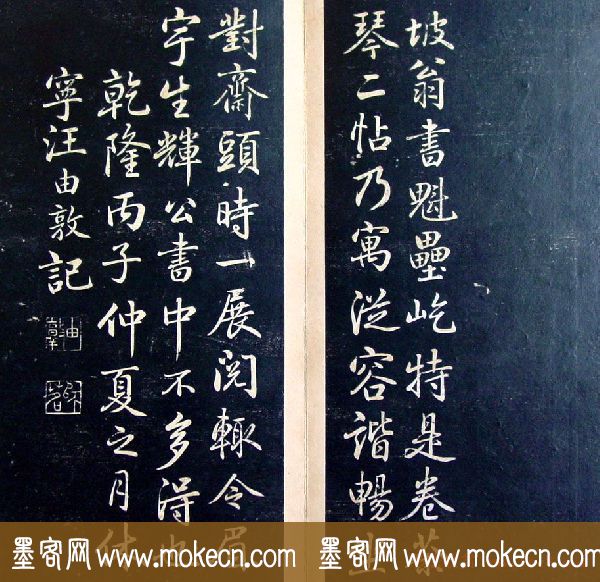 坡翁書魁壘屹特是卷
琴二帖乃寓從容諧暢
對齋頭時一展閱輒令眉
宇生輝公書中不多得也
乾隆丙子仲夏之月休
寧汪由敦記
由敦
墨客网 www.mokecn.com
墨客网 www.mokecn.com